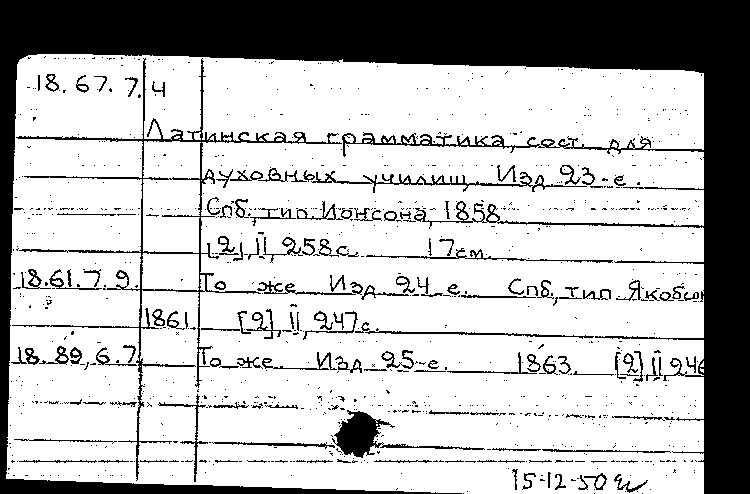 18.67.7.4
Латинская грамматика, сост. для
духовных училищ. Изд 23-е.
Спб., тип. Ионсона, 1858
[2], II, 258 с. 17 см.
18.61.7.9. То же Изд 24 е. Спб., тип. Якобсон
1861. [2], II, 247 с.
18.89.6.7. То же. Изд. 25-е. 1863. [2], II, 246
15-12-50